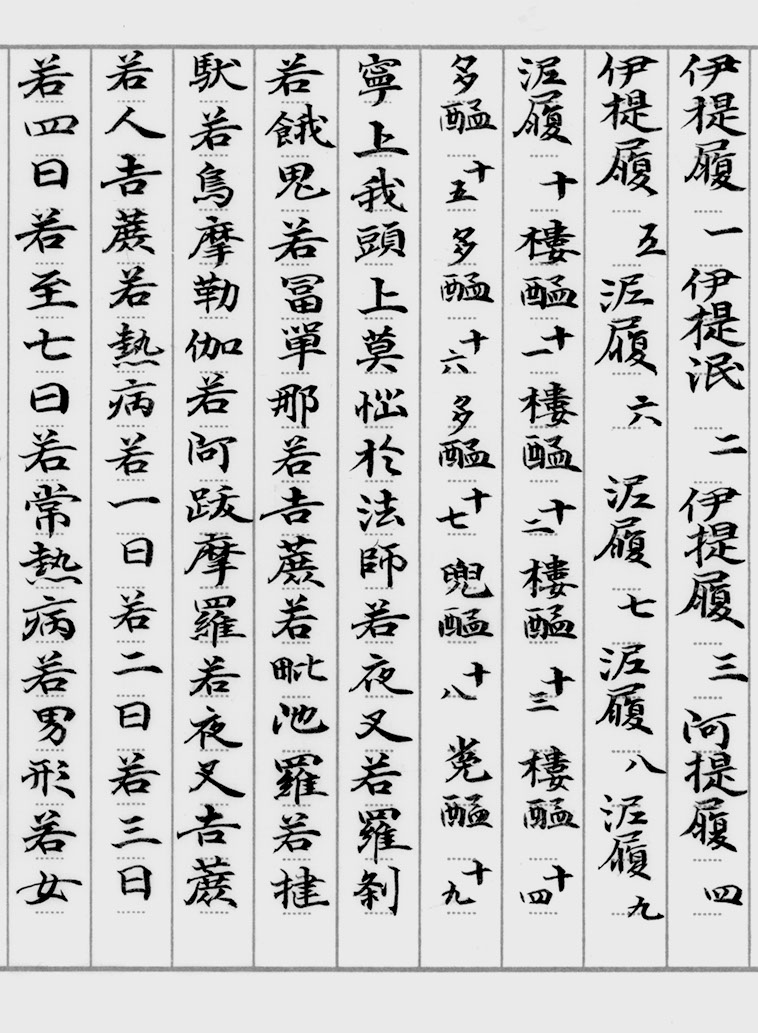 伊提履一伊提泯二伊提履三阿提履四
伊提履五泥履六泥履七泥履八泥履九
泥履十樓醯十一樓醯十二樓醯十三樓醯十四
多醯十五多醯十六多醯十七兜醯十八㝹醯十九
寧上我頭上莫惱於法師若夜叉若羅剎
若餓鬼若富單那若吉蔗若毗陀羅若揵
馱若烏摩勒伽若阿跋摩羅若夜叉吉蔗
若人吉蔗若熱病若一日若二日若三日
若四日若至七日若常熱病若男形若女